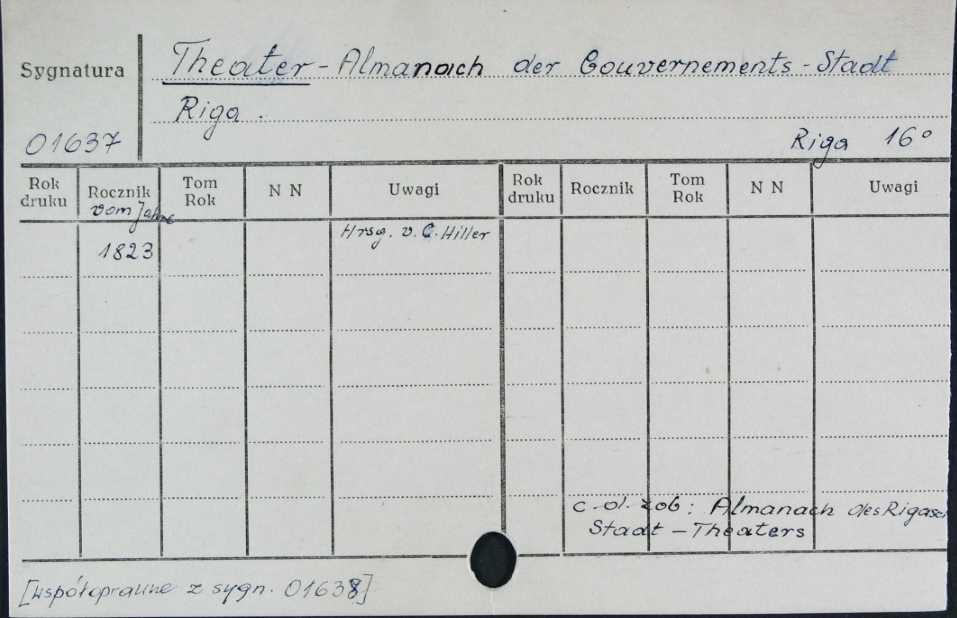 Sygnatura
Theater - Almanach der Gouvernements - Stadt
Riga.
01637
Riga 16°
Rok druku Rocznik Tom Rok N N Uwagi Rok druku Rocznik Tom Rok N N Uwagi
vom Jahre
1823 Hrsg. v. C. Hiller
c.d. zob: Almanach des Rigasch
Stadt - Theaters
[współoprawne z sygn. 01638]